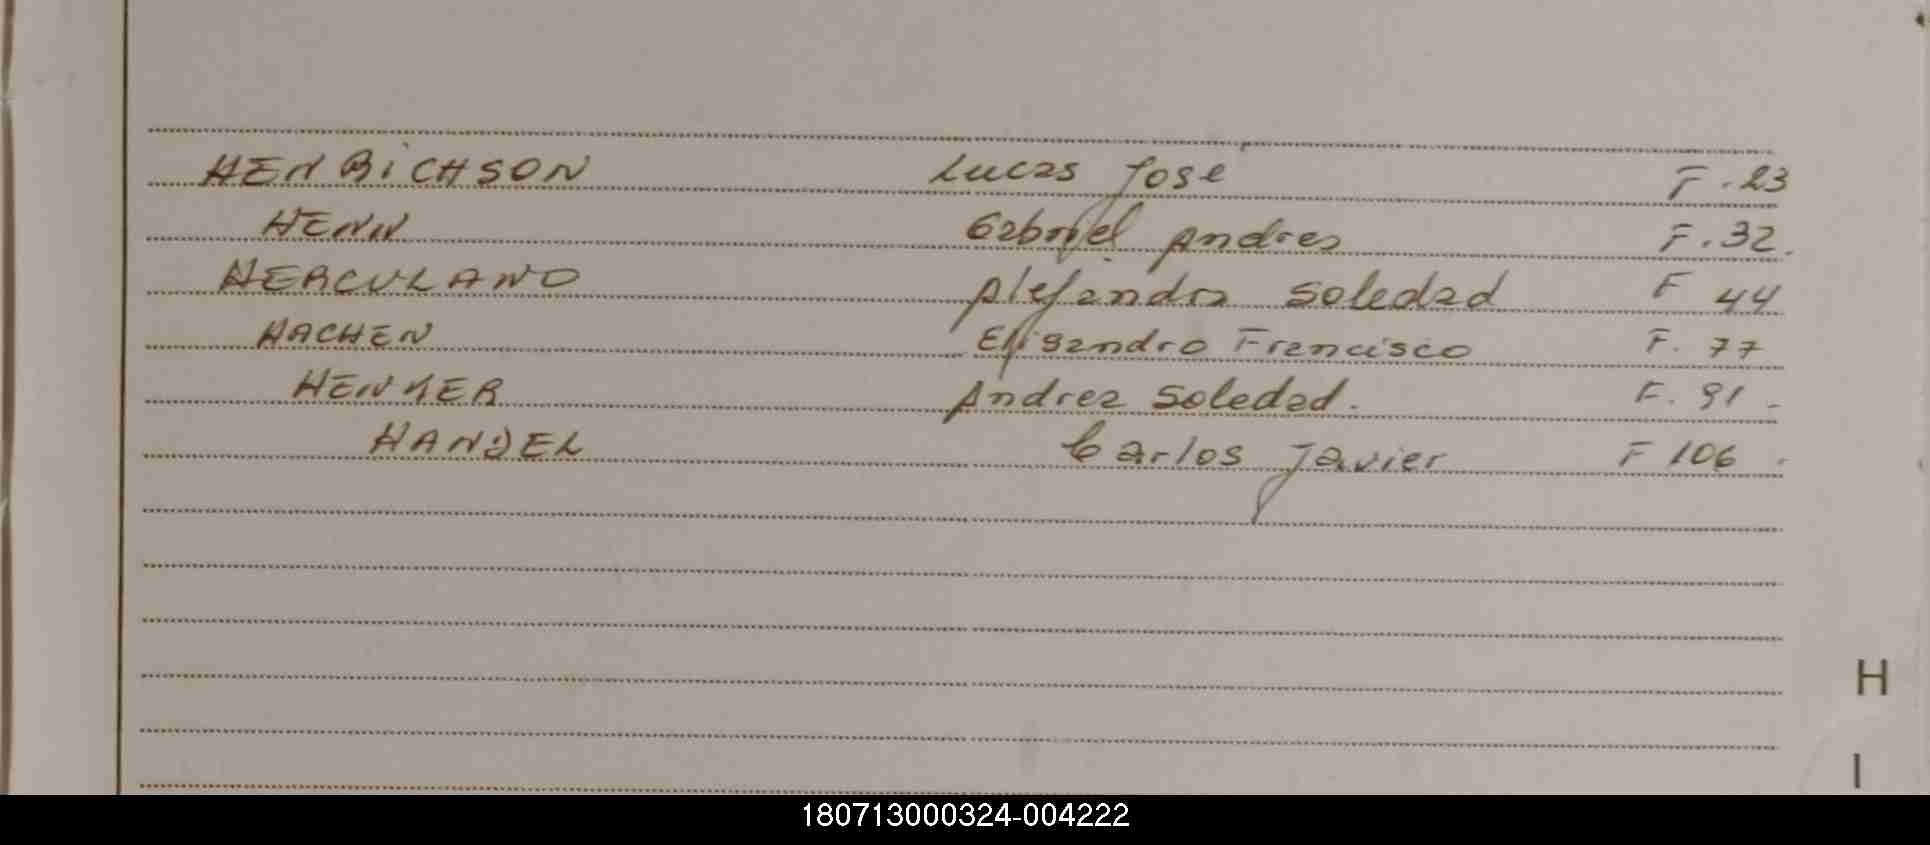 HENRICHSON Lucas Jose F. 23
HENN Gabriel Andres F. 32
HERCULANO Alejandra Soledad F 44
HACHEN Elisandro Francisco F. 77
HENKER Andrea Soledad. F. 91
HANDEL Carlos Javier F 106
H
I
180713000324-004222